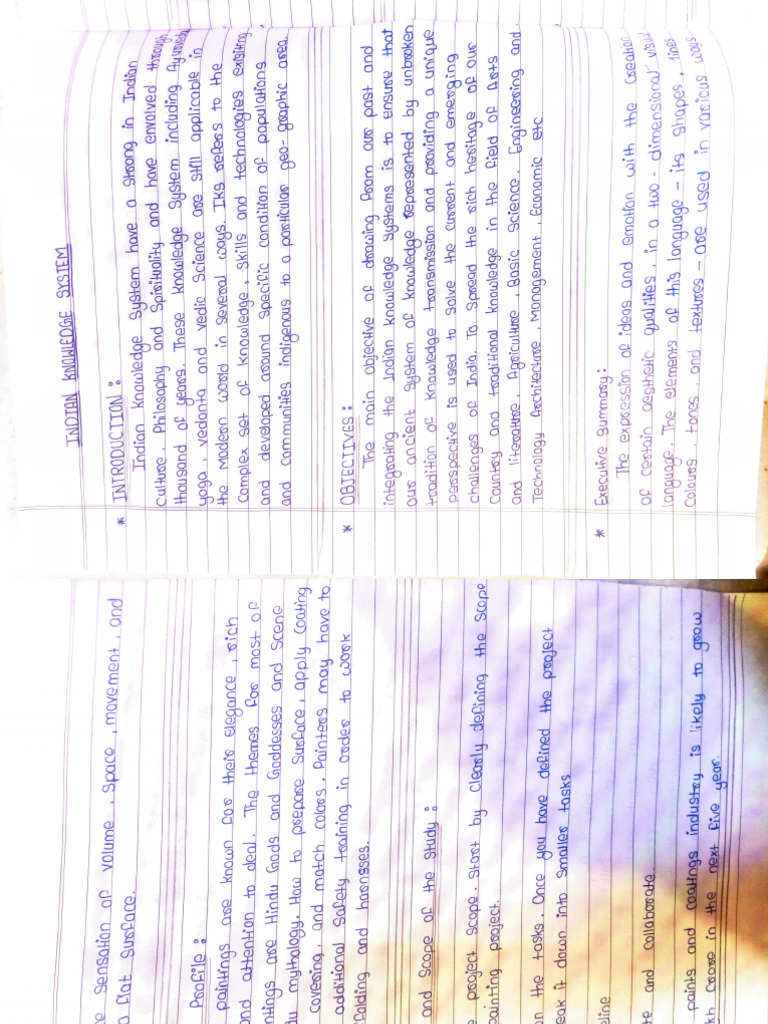 INDIAN KNOWLEDGE SYSTEM
* INTRODUCTION :
Indian knowledge System have a strong in Indian
Culture. Philosophy and Spirituality and have envolved through
thousand of years. These knowledge System including Ayurveda
yoga, vedanta and vedic Science are still applicable in
the Modern world in several ways. IKS refers to the
Complex set of knowledge, skills and technologies existing
and developed around specific condition of populations
and communities indigenous to a particular geo-graphic area.
* OBJECTIVES :
The main objective of drawing from our past and
integrating the Indian knowledge systems is to ensure that
our ancient system of knowledge represented by unbroken
tradition of knowledge transmission and providing a unique
perspective is used to solve the current and emerging
challenges of India. To Spread the rich heritage of our
Country and traditional knowledge in the field of Arts
and literature, Agriculture, Basic Science, Engineering and
Technology Architecture, Management, Economic etc.
* Executive Summary :
The expression of ideas and emotion with the creation
of certain aesthetic qualities, in a two-dimensional visual
language. The elements of this language - its shapes, lines
Colours tones, and textures - are used in various ways
sensation of volume, Space, movement, and
flat surface.
Profile :
paintings are known for their elegance, rich
and attention to deal. The themes for most of
ntings are Hindu Gods and Goddesses and Scene
du mythology. How to prepare Surface, apply coating
covering, and match colors. Painters may have to
additional safety training in order to work
folding and harnsses.
and Scope of the Study :
project scope. Start by clearly defining the scope
painting project.
n the tasks. Once you have defined the project
eak it down into smaller tasks
eline
te and collaborate
paints and coatings industry is likely to grow
kh crore in the next five year.